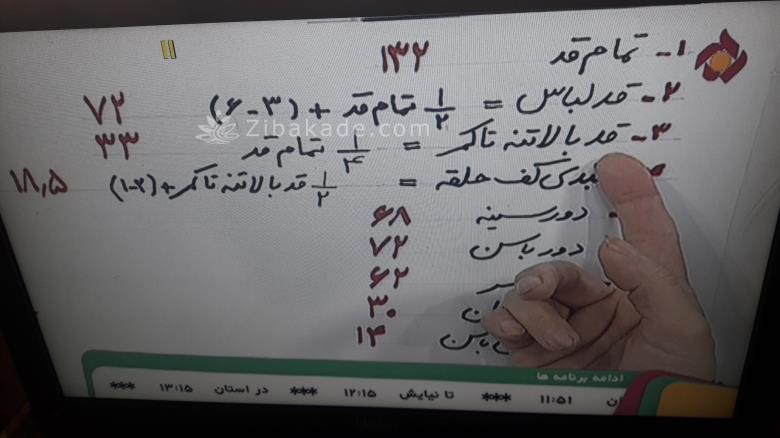 ۱- تمام قد ۱۳۲
۲- قد لباس = ۱/۲ تمام قد + (۳-۶) ۷۲
۳- قد بالاتنه تا کمر = ۱/۴ تمام قد ۳۳
کف حلقه = ۱/۲ قد بالاتنه تا کمر + (۱-۲) ۱۸,۵
دور سینه ۶۸
دور باسن ۷۲
۶۲
۳۰
باسن ۱۴
Zibakade.com
ادامه برنامه ها
۱۱:۵۱ *** تا نیایش ۱۲:۱۵ *** در استان ۱۳:۱۵ ***